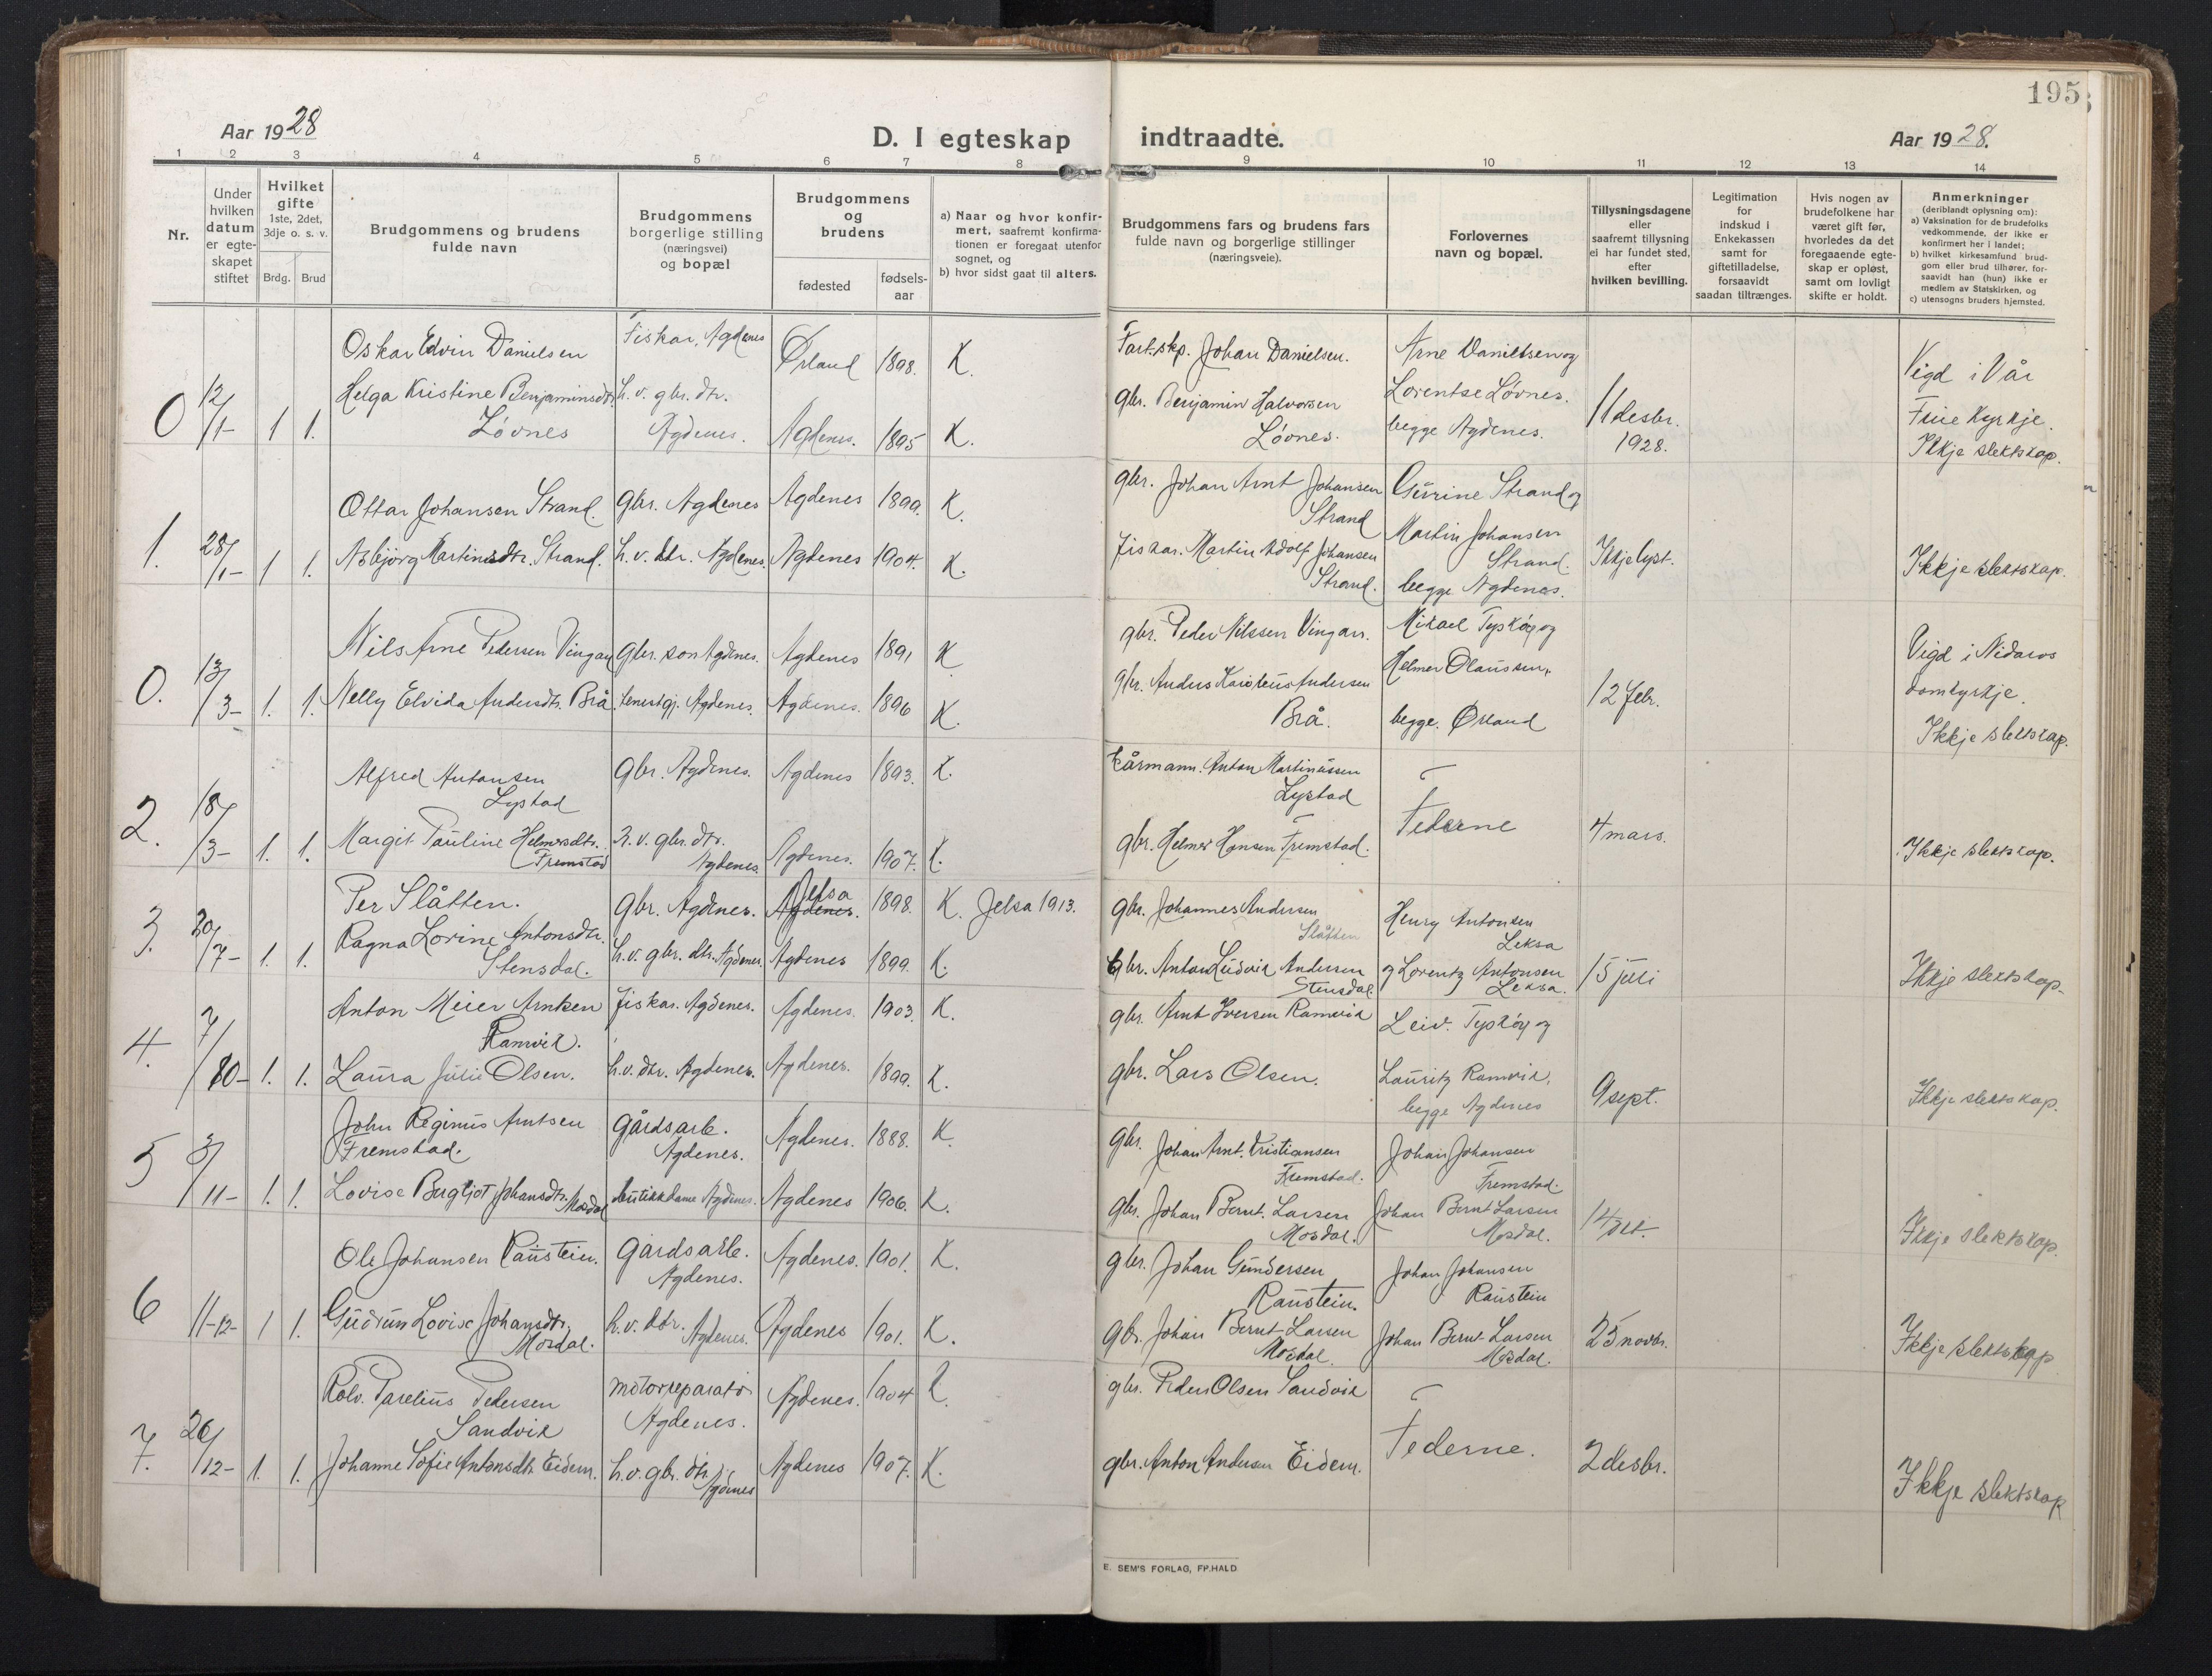 195
Aar 1928
D. I egteskap indtraadte.
Aar 1928.
1 2 3 4 5 6 7 8 9 10 11 12 13 14
Nr.
Under
hvilken
datum
er egte-
skapet
stiftet
Hvilket
gifte
1ste, 2det,
3dje o. s. v.
Brdg. Brud
Brudgommens og brudens
fulde navn
Brudgommens
borgerlige stilling
(næringsvei)
og bopæl
Brudgommens
og
brudens
fødested
fødsels-
aar
a) Naar og hvor konfir-
mert, saafremt konfirma-
tionen er foregaat utenfor
sognet, og
b) hvor sidst gaat til alters.
Brudgommens fars og brudens fars
fulde navn og borgerlige stillinger
(næringsveie).
Forlovernes
navn og bopæl.
Tillysningsdagene
eller
saafremt tillysning
ei har fundet sted,
efter
hvilken bevilling.
Legitimation
for
indskud i
Enkekassen
samt for
giftetilladelse,
forsaavidt
saadan tiltrænges.
Hvis nogen av
brudefolkene har
været gift før,
hvorledes da det
foregaaende egte-
skap er opløst,
samt om lovligt
skifte er holdt.
Anmerkninger
(deriblandt oplysning om):
a) Vaksination for de brudefolks
vedkommende, der ikke er
konfirmert her i landet;
b) hvilket kirkesamfund brud-
gom eller brud tilhører, for-
saavidt han (hun) ikke er
medlem av Statskirken, og
c) utensogns bruders hjemsted.
Oskar Edvin Danielsen Fiskar, Agdenes Ørland 1898. K. Johan Danielsen. Arne Danielsen og Vigd i Vår
0 12/1- 1 1. Helga Kristine Benjaminsdtr. h. v. gbr. dtr. gbr. Benjamin Halvorsen Lorentse Løvnes. 11 desbr. Frue Kyrkje.
Løvnes Agdenes. Agdenes. 1895 K. Løvnes. begge Agdenes. 1928. Ikkje slektskap.
Ottar Johansen Strand. gbr. Agdenes Agdenes 1899. K. gbr. Johan Arnt Johansen Gurine Strand og
Strand Martin Johansen
1. 28/1- 1 1. Asbjørg Martinsdtr. Strand. h. v. dtr. Agdenes. Agdenes 1904. K. fiskar. Martin Adolf Johansen Strand. Ikkje lyst. Ikkje slektskap.
Strand. begge Agdenes.
Nils Arne Pedersen Vingan gbr. son Agdenes. Agdenes 1891 K gbr. Peder Nilssen Vingan. Mikael Tyskøy og Vigd i Nidaros
0. 13/3- 1. 1. Nelly Elvida Andersdtr. Brå tenestgj. Agdenes. Agdenes. 1896 K. gbr. Anders Andersen Helmer Olaussen, 12 febr. domkyrkje.
Brå. begge. Ørland Ikkje slektskap.
Alfred Antonsen gbr. Agdenes. Agdenes 1893. K. kårmann. Anton Martinussen
Lystad Lystad
2. 18/3- 1. 1. Margit Pauline Helmersdtr. h. v. gbr. dtr. Agdenes. 1907. K. gbr. Helmer Hansen Fremstad. Federne 4 mars. Ikkje slektskap.
Fremstad Agdenes.
Per Slåtten. gbr. Agdenes. Agdenes. Jelsa 1898. K. Jelsa 1913. gbr. Johannes Andersen Henry Antonsen
Slåtten Leksa
3. 20/7- 1. 1. Ragna Lorine Antonsdtr. h. v. gbr. dtr. Agdenes. Agdenes 1899. K. Gbr. Anton Ludvik Andersen og Lorentz Antonsen 15 juli Ikkje slektskap.
Stensdal. Stensdal. Leksa.
Anton Meier Arntsen fiskar. Agdenes. Agdenes. 1903. K. gbr. Arnt Iversen Ramvik Leiv. Tyskøy og
Ramvik.
4. 7/10- 1. 1. Laura Julie Olsen. h. v. dtr. Agdenes. Agdenes. 1899. K. gbr. Lars Olsen. Lauritz Ramvik, 9 sept. Ikkje slektskap.
begge Agdenes
John Reginus Arntsen gårdsarb. Agdenes. 1888. K. gbr. Johan Arnt. Kristiansen Johan Johansen
Fremstad. Agdenes. Fremstad. Fremstad.
5 3/11- 1. 1. Lovise Bergljot Johansdtr. Mosdal butikkdame Agdenes. Agdenes 1906. K. gbr. Johan Bernt. Larsen Johan Bernt Larsen 14 okt. Ikkje slektskap.
Mosdal. Mosdal.
Ole Johansen Raustein. gårdsarb. Agdenes. 1901. K. gbr. Johan Gundersen Johan Johansen
Agdenes. Raustein. Raustein
6 11-12- 1 1. Gudrun Lovise Johansdtr. h. v. dtr. Agdenes. Agdenes 1901. K. gbr. Johan Bernt Larsen Johan Bernt Larsen 25 novbr. Ikkje slektskap
Mosdal. Mosdal. Mosdal.
Rolv. Parelius Pedersen motorreparatør Agdenes. 1904 K. gbr. Peder Olsen Sandvik
Sandvik Agdenes.
7. 26/12- 1. 1. Johanne Sofie Antonsdtr. Eidem. h. v. gbr. dtr. Agdenes Agdenes 1907. K. gbr. Anton Andersen Eidem. Federne. 2 desbr. Ikkje slektskap
E. SEM'S FORLAG, FP.HALD